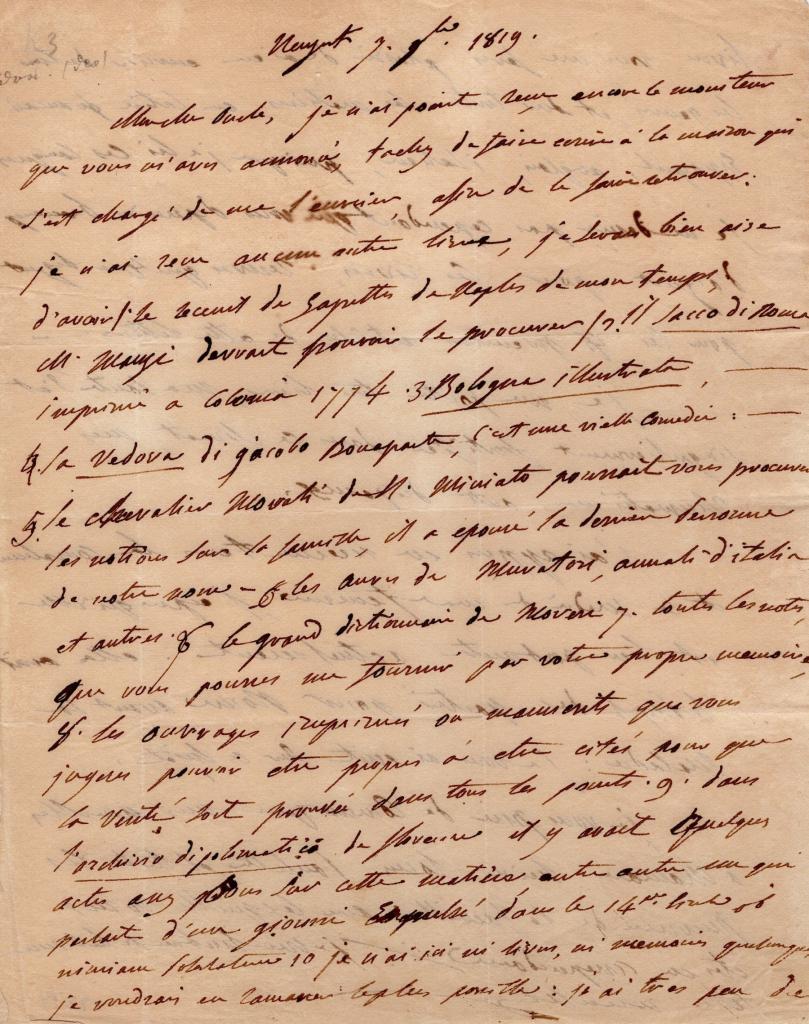 Newyork 7. 9bre. 1819.
Mon cher Oncle, je n'ai point reçu encore le moniteur
que vous m'aves annoncé, tachez de faire ecrire à la maison qui
s'est chargé de me l'envoier afin de le faire retrouver.
je n'ai reçu aucun autre livre, je serais bien aise
d'avoir 1. le recueil de Gazettes de Naples de mon temps,
Mr devrait pouvoir le procurer 2. il Sacco di Roma
imprimé a Colonia 1774. 3. Bologna illustrata,
4. la Vedova di Jacobo Bonaparte, c'est une vielle Comedie:
5. le chevalier Morali de St. Miniato pourrait vous procurer
les notions sur la famille il a epousé la derniere personne
de notre nom - 6. les auvres de Muratori, annali d'italia
et autres. le grand dictionnaire de Moreri 7. toutes les notes,
que vous pourres me fournir par votre propre memoire,
8. les ouvrages imprimés ou manuscrits que vous
jugeres pouvoir etre propres à etre cités pour que
la verité soit prouvée dans tous les points. 9. dans
l'archivio diplomatico de florence il y avait quelques
actes sur cette matière entre autre un qui
parlait d'un dans le 14me
10 je n'ai ici ni livres, ni memoires quelconques
je voudrais en ramasser le plus possible: j'ai tres peu de